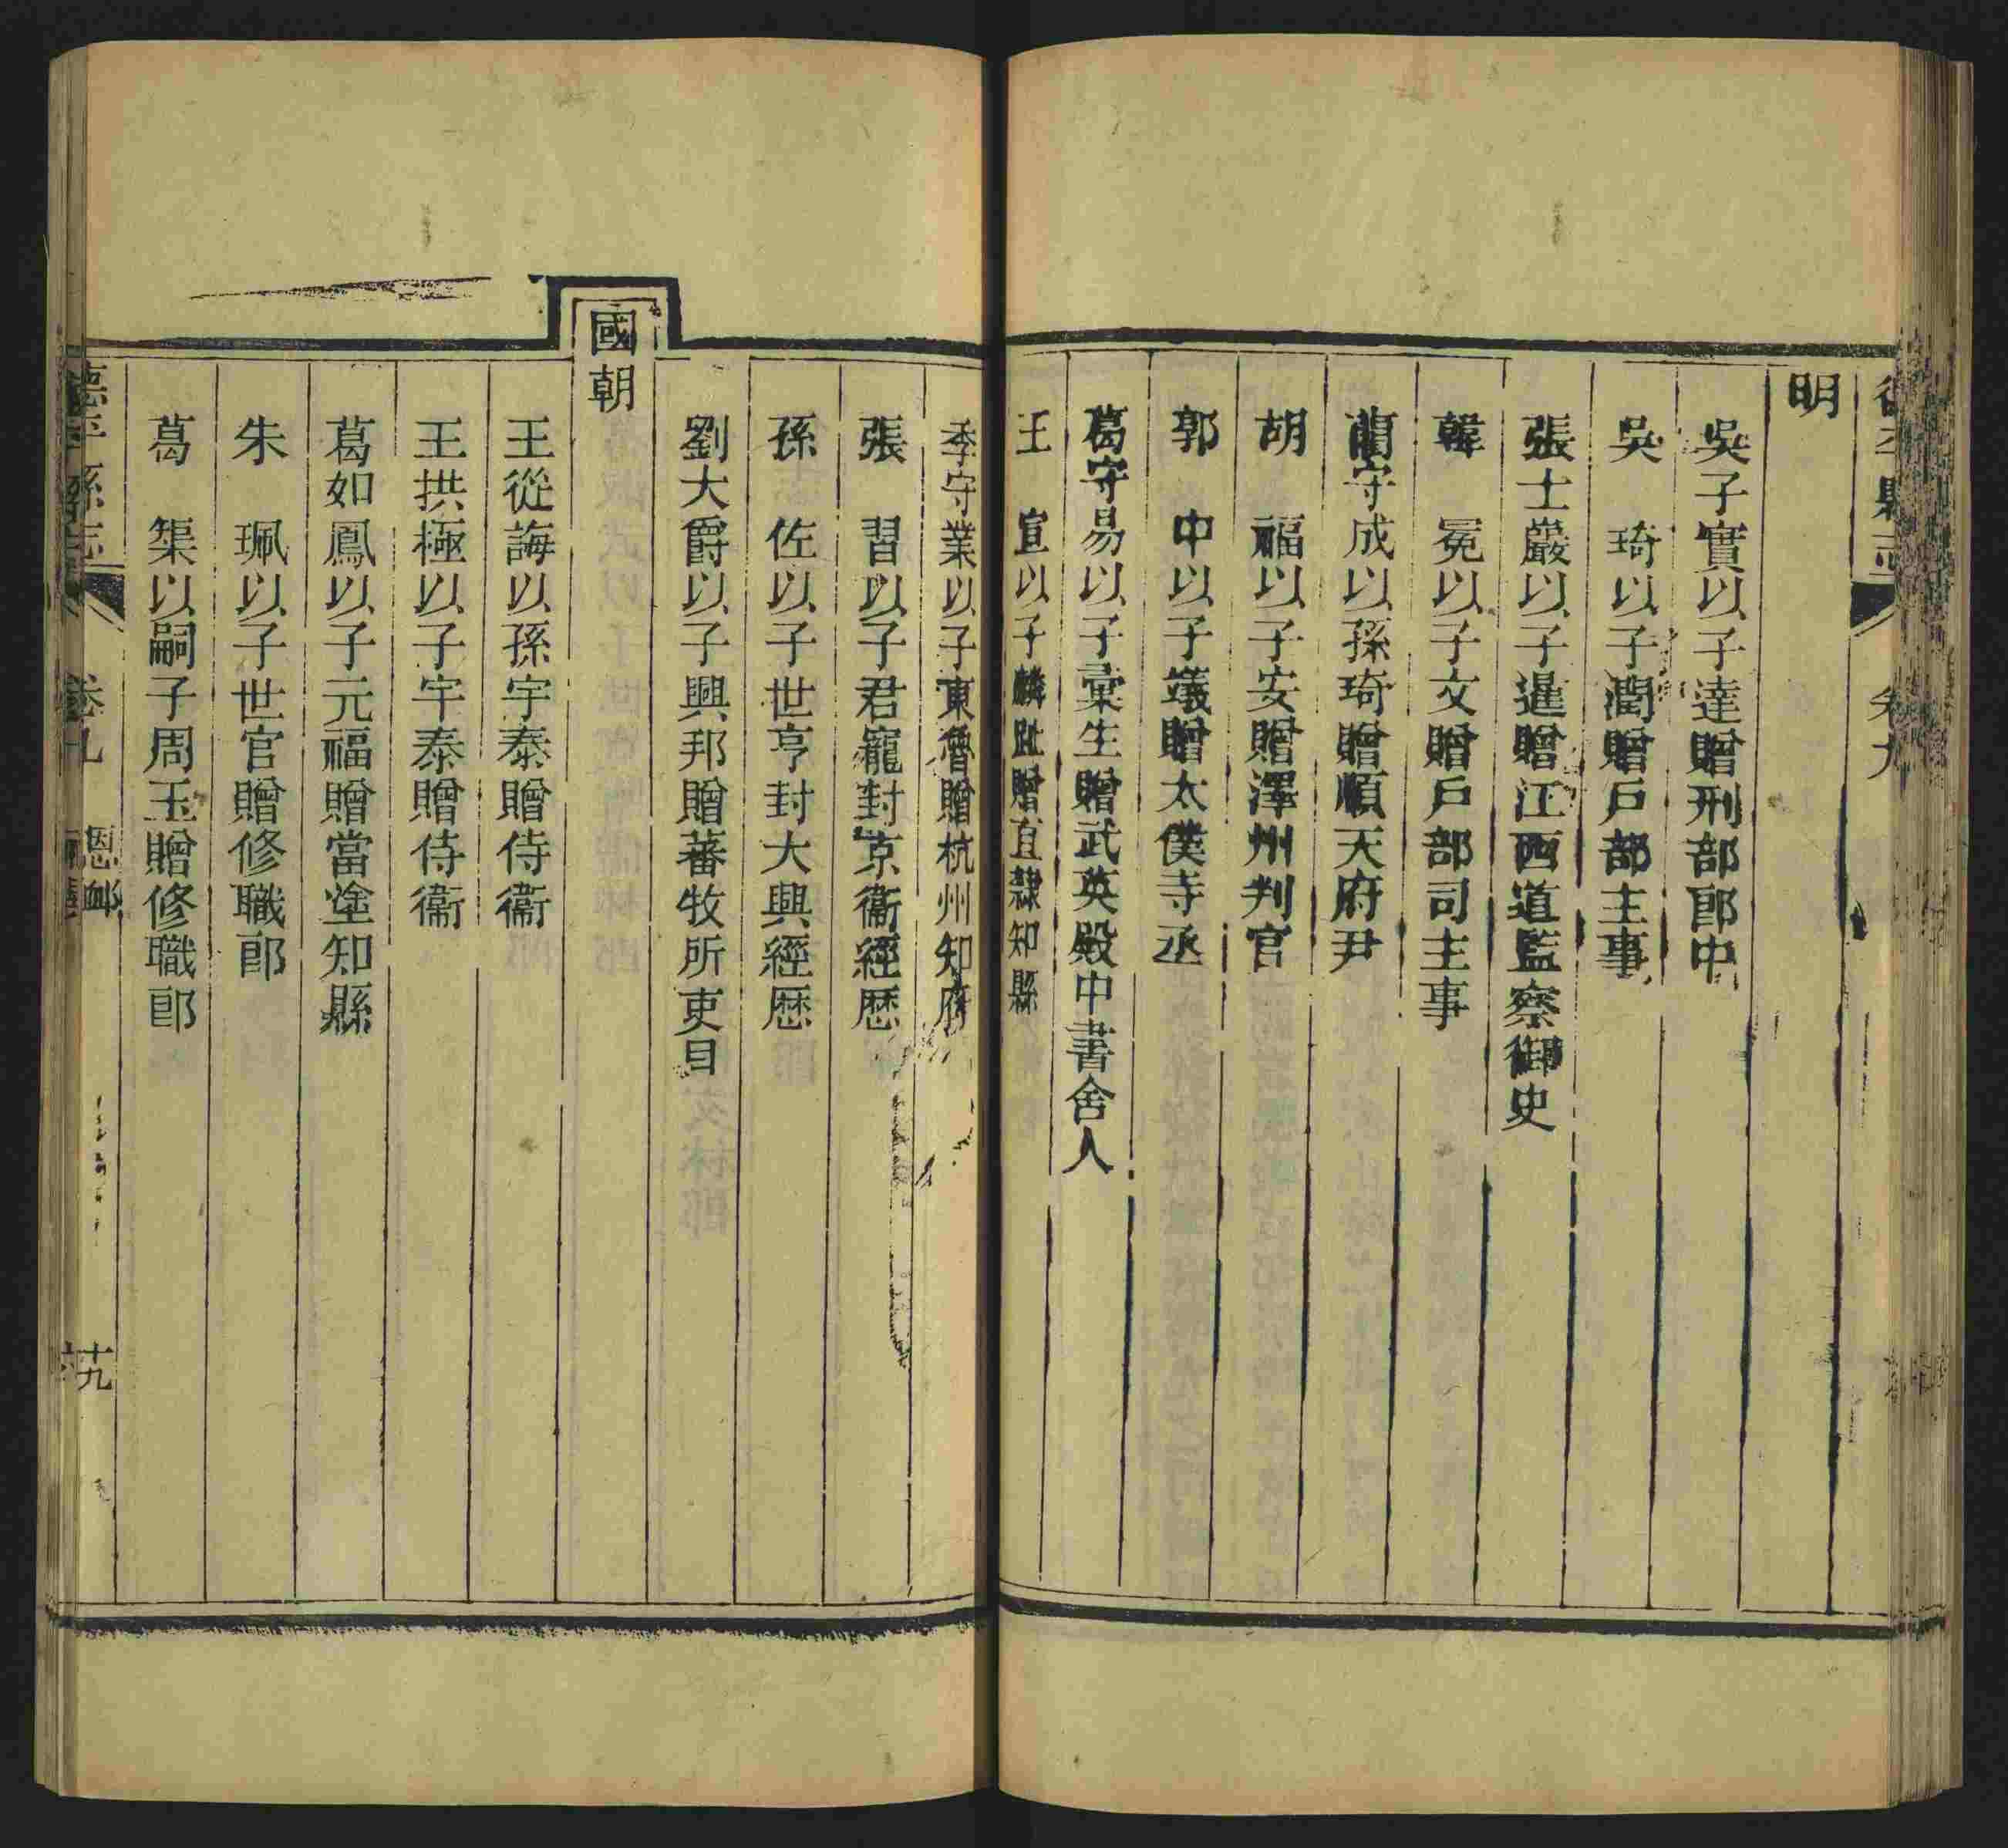 德平縣志 卷九
明
吳子實以子達贈刑部郎中
吳 琦以子潤贈戶部主事
張士巖以子暹贈江西道監察御史
韓 冕以子文贈戶部司主事
藺守成以孫琦贈順天府尹
胡 福以子安贈澤州判官
郭 中以子𡹉贈太僕寺丞
葛守易以子彙生贈武英殿中書舍人
王 宣以子麟趾贈直隸知縣
季守業以子東魯贈杭州知府
張 習以子君寵封京衞經歷
孫 佐以子世亨封大興經歷
劉大爵以子興邦贈蕃牧所吏目
國朝
王從誨以孫宇泰贈侍衞
王拱極以子宇泰贈侍衞
葛如鳳以子元福贈當塗知縣
朱 珮以子世官贈修職郎
葛 榘以嗣子周玉贈修職郎
德平縣志 卷九 恩卹 十九